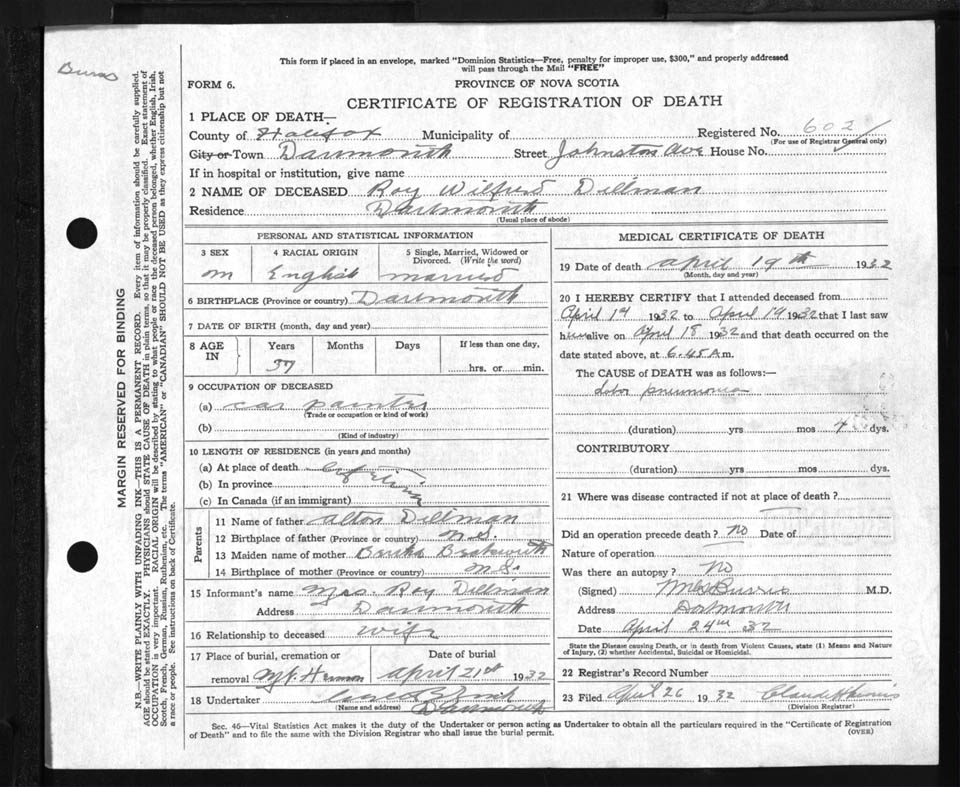 Burns
This form if placed in an envelope, marked "Dominion Statistics—Free, penalty for improper use, $300," and properly addressed
will pass through the Mail "FREE"
FORM 6.
PROVINCE OF NOVA SCOTIA
CERTIFICATE OF REGISTRATION OF DEATH
1 PLACE OF DEATH—
County of Halifax Municipality of Registered No. 602
(For use of Registrar General only)
City or Town Dartmouth Street Johnston Ave House No.
If in hospital or institution, give name
2 NAME OF DECEASED Roy Wilfred Dillman
Residence Dartmouth
(Usual place of abode)
PERSONAL AND STATISTICAL INFORMATION
3 SEX 4 RACIAL ORIGIN 5 Single, Married, Widowed or
Divorced. (Write the word)
m English married
6 BIRTHPLACE (Province or country) Dartmouth
7 DATE OF BIRTH (month, day and year)
8 AGE IN Years Months Days If less than one day,
37 hrs. or min.
9 OCCUPATION OF DECEASED
(a) car painter
(Trade or occupation or kind of work)
(b)
(Kind of industry)
10 LENGTH OF RESIDENCE (in years and months)
(a) At place of death
(b) In province
(c) In Canada (if an immigrant)
Parents
11 Name of father Alton Dillman
12 Birthplace of father (Province or country) N.S.
13 Maiden name of mother Beckwith
14 Birthplace of mother (Province or country) N.S.
15 Informant's name Mrs. Roy Dillman
Address Dartmouth
16 Relationship to deceased wife
17 Place of burial, cremation or Date of burial
removal Mt. Hermon April 21st 1932
18 Undertaker
(Name and address) Dartmouth
MEDICAL CERTIFICATE OF DEATH
19 Date of death April 19th 1932
(Month, day and year)
20 I HEREBY CERTIFY that I attended deceased from
April 17 1932 to April 19 1932 that I last saw
him alive on April 18 1932 and that death occurred on
date stated above, at 6.45 A m.
The CAUSE of DEATH was as follows:—
lobar pneumonia
(duration) yrs mos 4 dys.
CONTRIBUTORY
(duration) yrs mos dys.
21 Where was disease contracted if not at place of death?
Did an operation precede death? No Date of
Nature of operation
Was there an autopsy? No
(Signed) Burris M.D.
Address Dartmouth
Date April 24th 32
State the Disease causing Death, or in death from Violent Causes, state (1) Means and Nature
of Injury, (2) whether Accidental, Suicidal or Homicidal.
22 Registrar's Record Number
23 Filed April 26 1932
(Division Registrar)
Sec. 46—Vital Statistics Act makes it the duty of the Undertaker or person acting as Undertaker to obtain all the particulars required in the "Certificate of Registration
of Death" and to file the same with the Division Registrar who shall issue the burial permit.
(OVER)
MARGIN RESERVED FOR BINDING
N.B.—WRITE PLAINLY WITH UNFADING INK—THIS IS A PERMANENT RECORD. Every item of information should be carefully supplied.
AGE should be stated EXACTLY. PHYSICIANS should STATE CAUSE OF DEATH in plain terms, so that it may be properly classified. Exact statement of
OCCUPATION is very important. RACIAL ORIGIN will be described by stating to what people or race the deceased person belonged, whether English, Irish,
Scotch, French, German, Russian, Ruthenian, etc. The terms "AMERICAN" or "CANADIAN" SHOULD NOT BE USED as they express citizenship but not
a race or people. See instructions on back of Certificate.